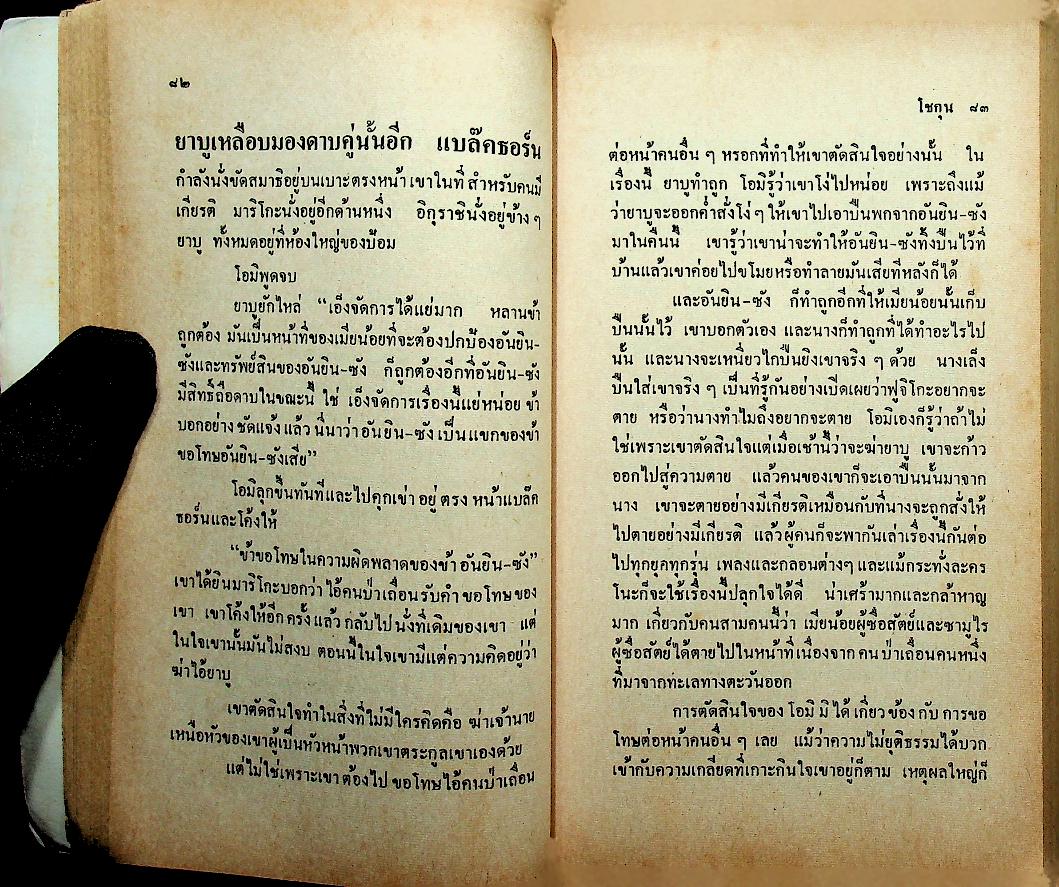 ๘๒
ยาบูเหลือบมองดาบคู่นั้นอีก แบล๊คธอร์น
กำลังนั่งขัดสมาธิอยู่บนเบาะตรงหน้า เขาในที่ สำหรับคนมี
เกียรติ มาริโกะนั่งอยู่อีกด้านหนึ่ง อิกุราชินั่งอยู่ข้าง ๆ
ยาบู ทั้งหมดอยู่ที่ห้องใหญ่ของป้อม
โอมิพูดจบ
ยาบูยักไหล่ “เอ็งจัดการได้แย่มาก หลานข้า
ถูกต้อง มันเป็นหน้าที่ของเมียน้อยที่จะต้องปกป้องอันยิน-
ซังและทรัพย์สินของอันยิน-ซัง ก็ถูกต้องอีกที่อันยิน-ซัง
มีสิทธิ์ถือดาบในขณะนี้ ใช่ เอ็งจัดการเรื่องนี้แย่หน่อย ข้า
บอกอย่าง ชัดแจ้ง แล้ว นี่นาว่า อันยิน-ซัง เป็น แขกของข้า
ขอโทษอันยิน-ซังเสีย”
โอมิลุกขึ้นทันทีและไปคุกเข่า อยู่ ตรง หน้าแบล๊ค
ธอร์นและโค้งให้
“ข้าขอโทษในความผิดพลาดของข้า อันยิน-ซัง”
เขาได้ยินมาริโกะบอกว่า ไอ้คนป่าเถื่อน รับคำ ขอโทษ ของ
เขา เขาโค้งให้อีกครั้ง แล้ว กลับไป นั่งที่เดิมของเขา แต่
ในใจเขานั้นมันไม่สงบ ตอนนี้ในใจเขามีแต่ความคิดอยู่ว่า
ฆ่าไอ้ยาบู
เขาตัดสินใจทำในสิ่งที่ไม่มีใครคิดคือ ฆ่าเจ้านาย
เหนือหัวของเขาผู้เป็นหัวหน้าพวกเขาตระกูลเขาเองด้วย
แต่ไม่ใช่เพราะเขา ต้องไป ขอโทษไอ้คนป่าเถื่อน
โชกุน ๘๓
ต่อหน้าคนอื่น ๆ หรอกที่ทำให้เขาตัดสินใจอย่างนั้น ใน
เรื่องนี้ ยาบูทำถูก โอมิรู้ว่าเขาโง่ไปหน่อย เพราะถึงแม้
ว่ายาบูจะออกคำสั่งโง่ ๆ ให้เขาไปเอาปืนพกจากอันยิน-ซัง
มาในคืนนี้ เขารู้ว่าเขาน่าจะทำให้อันยิน-ซังทิ้งปืนไว้ที่
บ้านแล้วเขาค่อยไปขโมยหรือทำลายมันเสียทีหลังก็ได้
และอันยิน-ซัง ก็ทำถูกอีกที่ให้เมียน้อยนั้นเก็บ
ปืนนั้นไว้ เขาบอกตัวเอง และนางก็ทำถูกที่ได้ทำอะไรไป
นั้น และนางจะเหนี่ยวไกปืนยิงเขาจริง ๆ ด้วย นางเล็ง
ปืนใส่เขาจริง ๆ เป็นที่รู้กันอย่างเปิดเผยว่าฟูจิโกะอยากจะ
ตาย หรือว่านางทำไมถึงอยากจะตาย โอมิเองก็รู้ว่าถ้าไม่
ใช่เพราะเขาตัดสินใจแต่เมื่อเช้านี้ว่าจะฆ่ายาบู เขาจะก้าว
ออกไปสู่ความตาย แล้วคนของเขาก็จะเอาปืนนั้นมาจาก
นาง เขาจะตายอย่างมีเกียรติเหมือนกับที่นางจะถูกสั่งให้
ไปตายอย่างมีเกียรติ แล้วผู้คนก็จะพากันเล่าเรื่องนี้กันต่อ
ไปทุกยุคทุกรุ่น เพลงและกลอนต่างๆ และแม้กระทั่งละคร
โนะก็จะใช้เรื่องนี้ปลุกใจได้ดี น่าเศร้ามากและกล้าหาญ
มาก เกี่ยวกับคนสามคนนี้ว่า เมียน้อยผู้ซื่อสัตย์และซามูไร
ผู้ซื่อสัตย์ได้ตายไปในหน้าที่เนื่องจาก คน ป่าเถื่อนคนหนึ่ง
ที่มาจากทะเลทางตะวันออก
การตัดสินใจของ โอมิ มิ ได้ เกี่ยว ข้อง กับ การขอ
โทษต่อหน้าคนอื่น ๆ เลย แม้ว่าความไม่ยุติธรรมได้บวก
เข้ากับความเกลียดที่เกาะกินใจเขาอยู่ก็ตาม เหตุผลใหญ่ก็